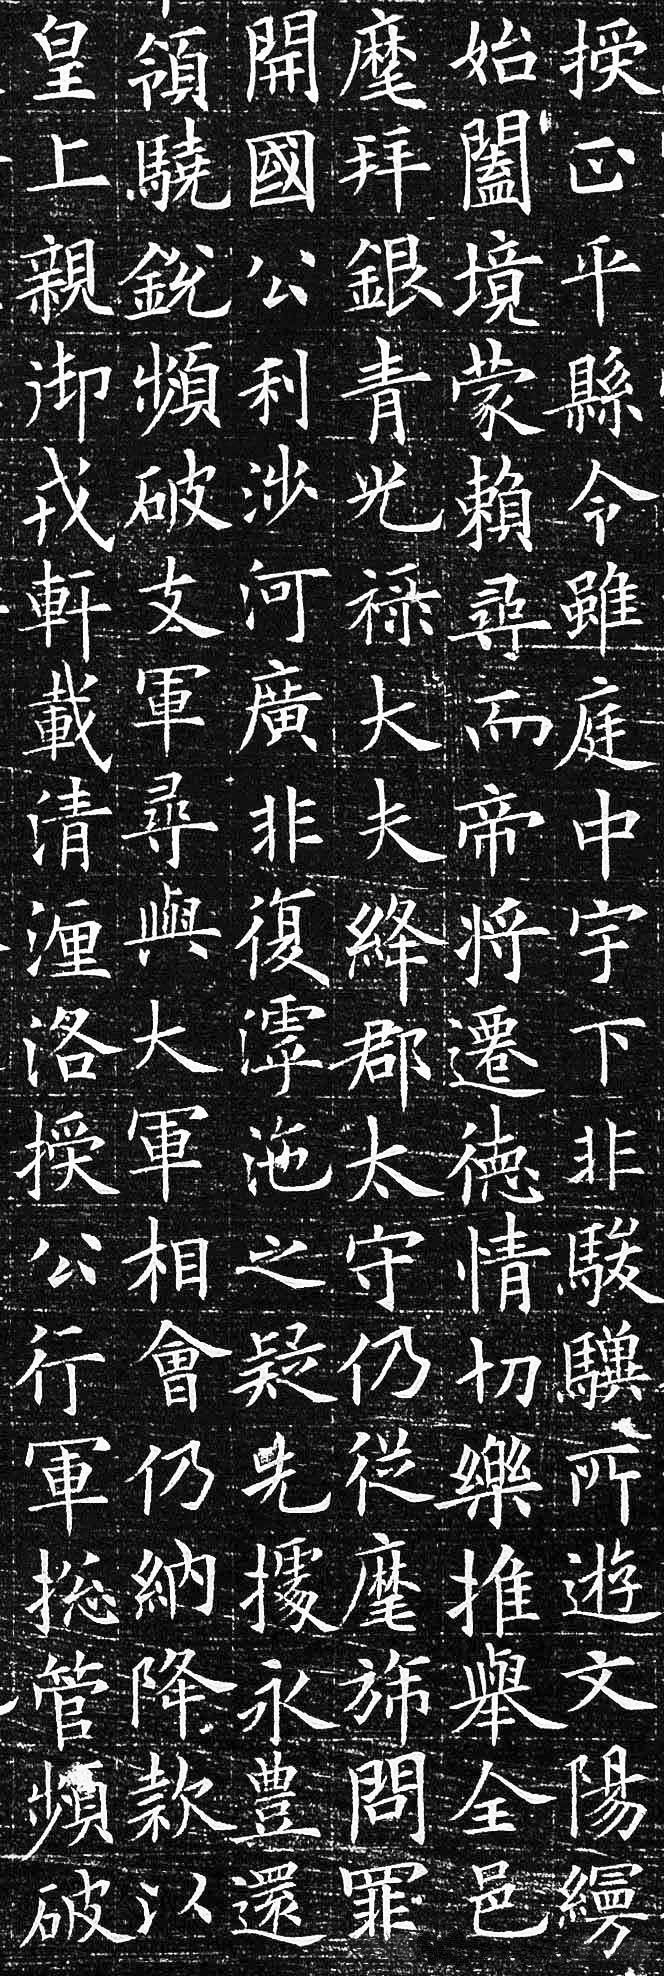 授正平縣令雖庭中宇下非駿驥所遊文陽縵
始闔境蒙賴尋而帝将遷德情切樂推舉全邑
麾拜銀青光禄大夫絳郡太守仍從麾旆問罪
開國公利涉河廣非復滹沲之疑先據永豊還
領驍銳頻破支軍尋與大軍相會仍納降款以
皇上親御戎軒載清瀍洛授公行軍揔管頻破